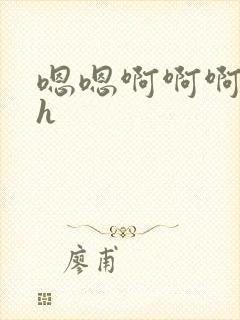 嗯嗯啊啊啊
h
廖甫